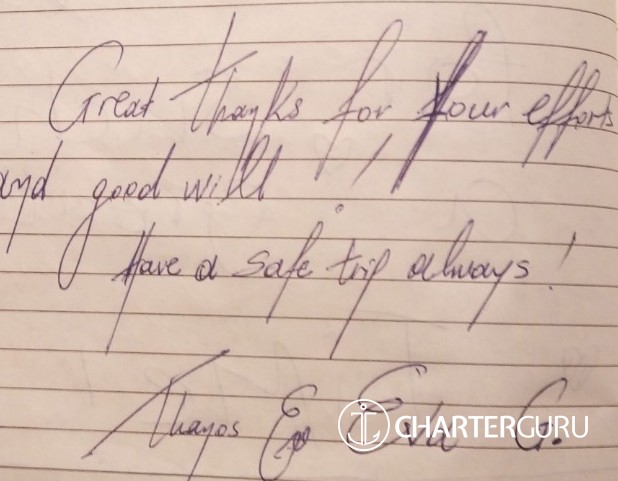 Great thanks for your efforts
and good will!
Have a safe trip always!
Thanos Eva G.
CHARTERGURU